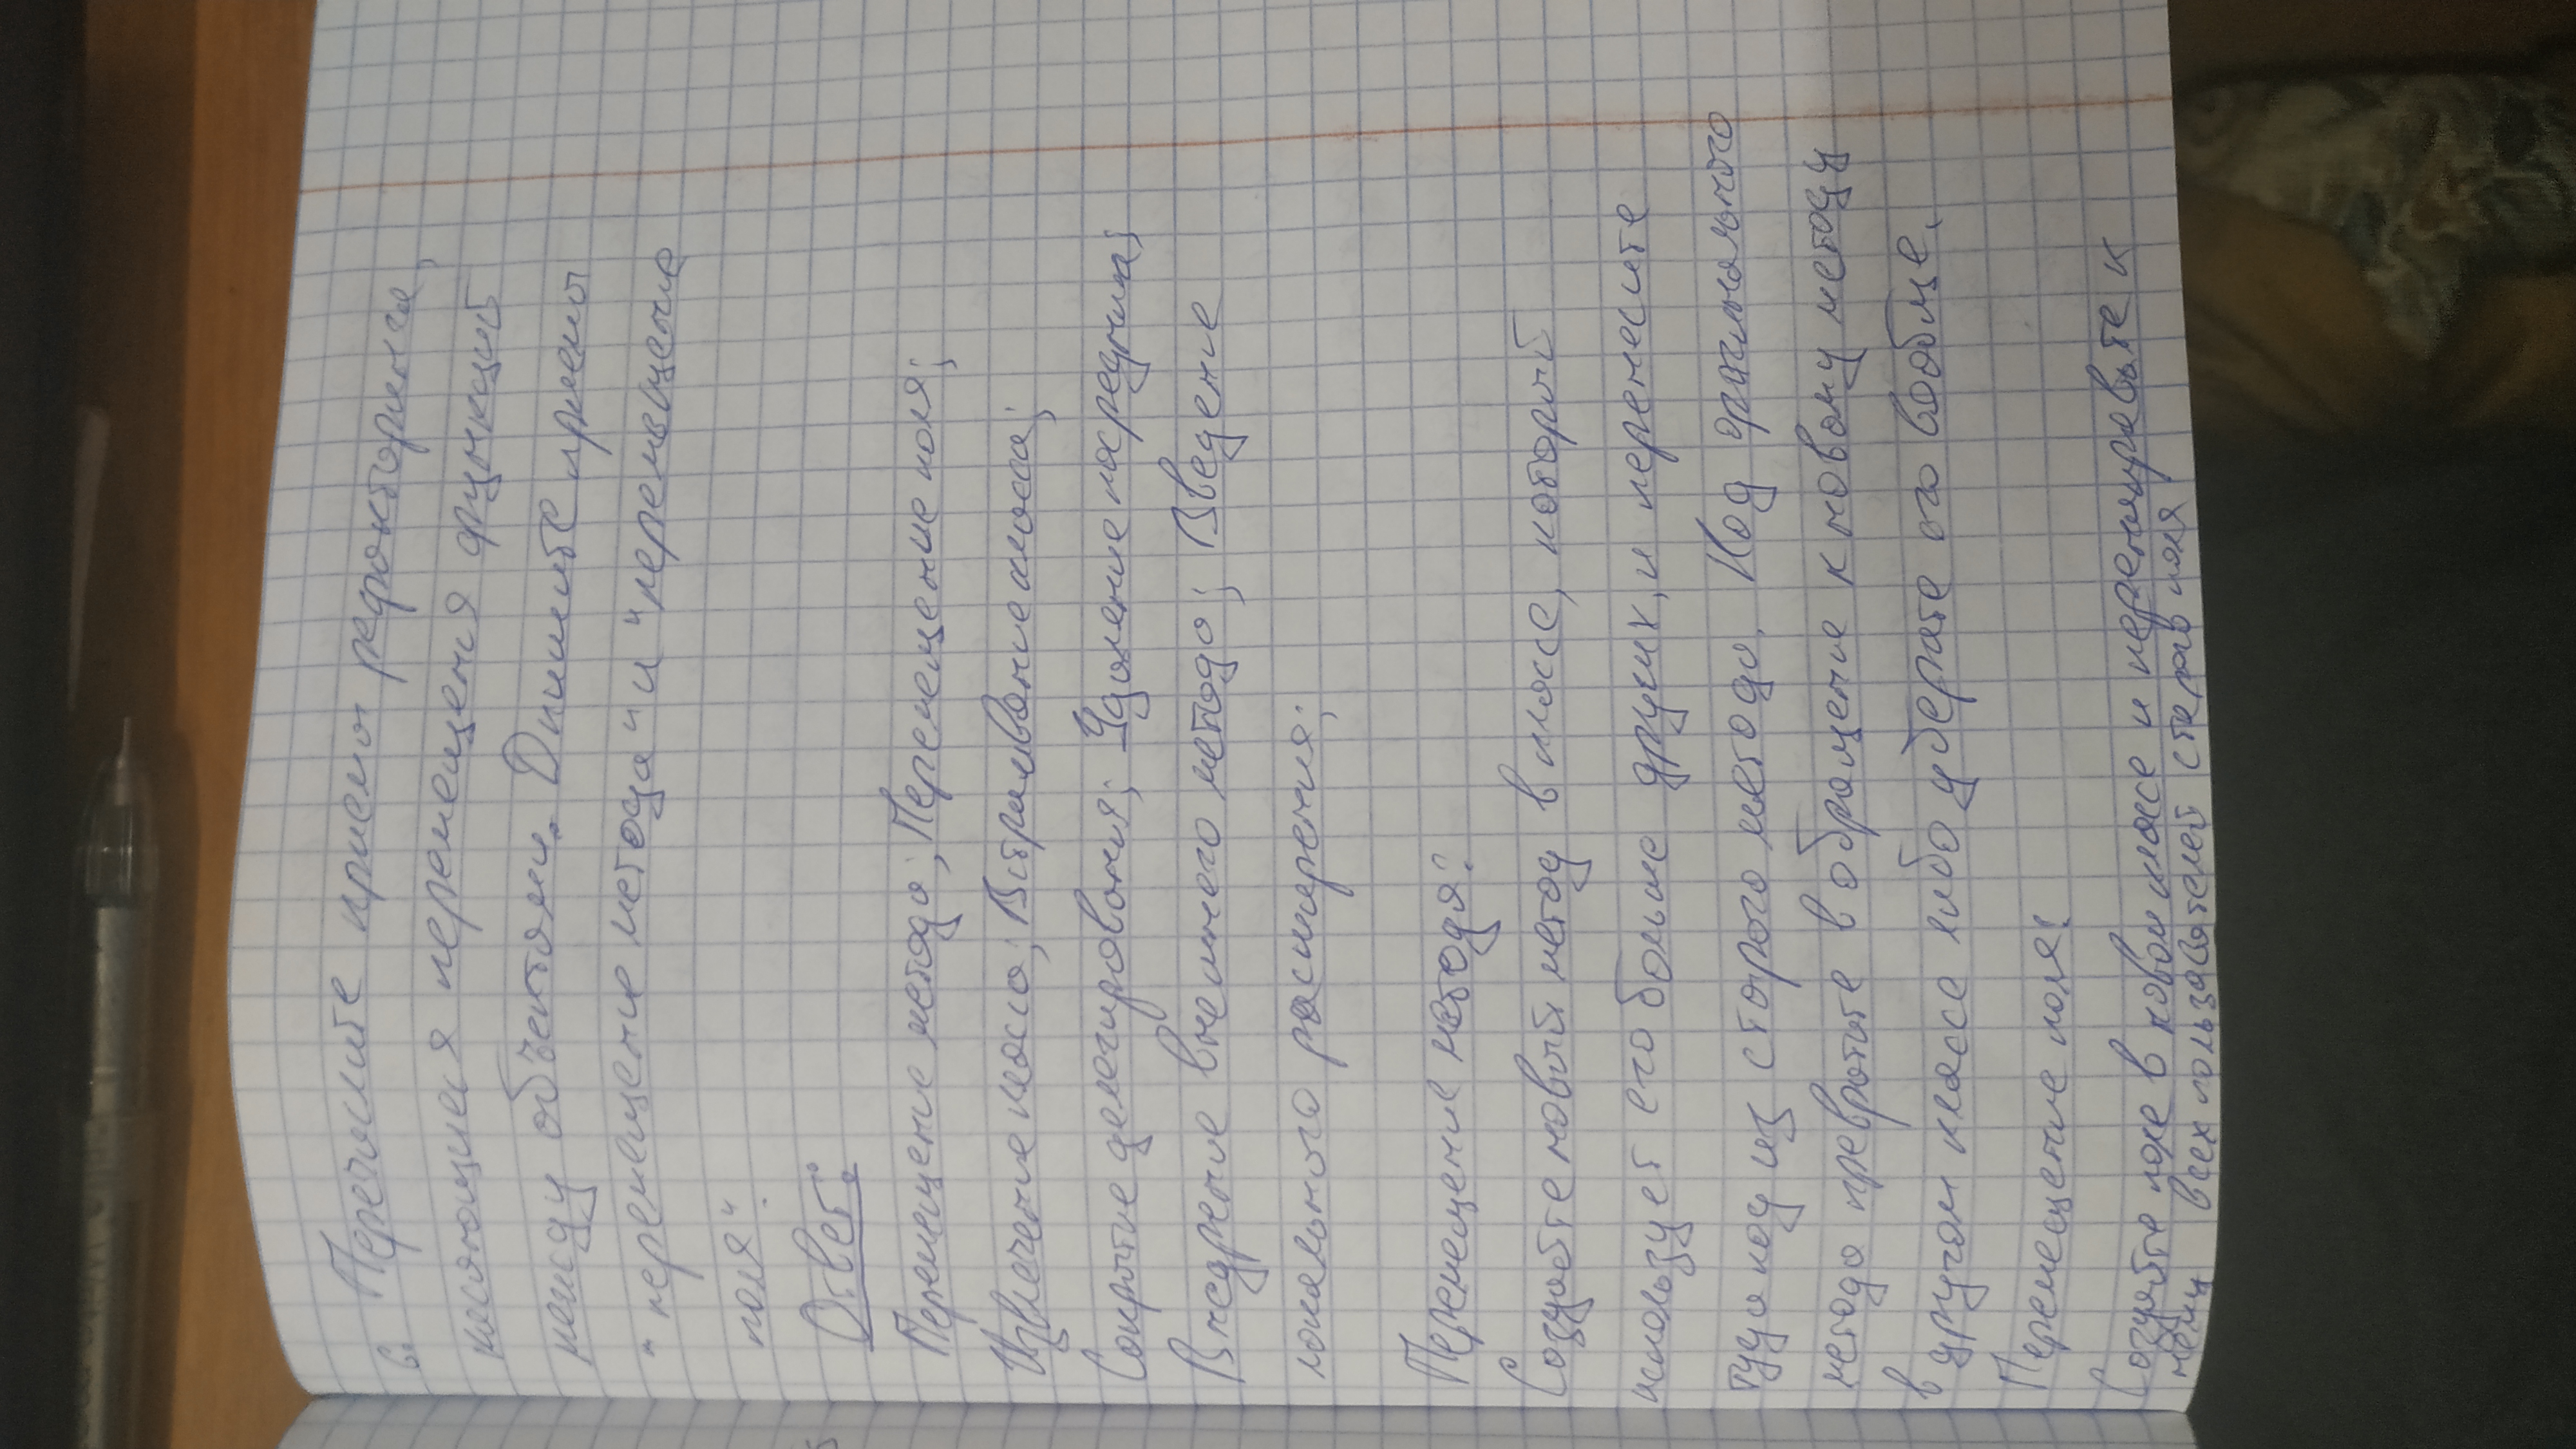 6. Перечислите приемы рефакторинга,
касающиеся перемещения функций
между объектами. Опишите приемы
"перемещение метода" и "перемещение
поля".
Ответ:
Перемещение метода; Перемещение поля;
Извлечение класса; Встраивание класса;
Сокрытие делегирования; Удаление посредника;
Внедрение внешнего метода; Введение
локального расширения;
Перемещение метода:
Создайте новый метод в классе, который
использует его больше других, и перенесите
туда код из старого метода. Код оригинального
метода превратите в обращение к новому методу
в другом классе либо уберите его вообще.
Перемещение поля:
Создайте поле в новом классе и перенаправьте к
нему всех пользователей старого поля